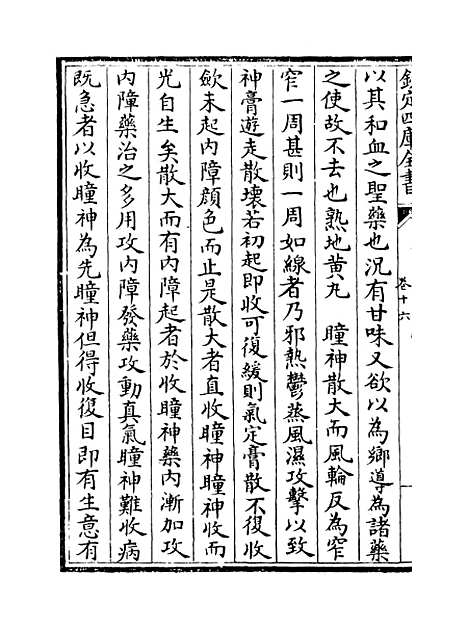 欽定四庫全書
卷十六
以其和血之聖藥也況有甘味又欲以為鄉導為諸藥
之使故不去也熟地黄丸 瞳神散大而風輪反為窄
窄一周甚則一周如線者乃邪熱鬱蒸風濕攻擊以致
神膏遊走散壞若初起即收可復緩則氣定膏散不復收
歛未起內障顔色而止是散大者直收瞳神瞳神收而
光自生矣散大而有內障起者於收瞳神藥內漸加攻
內障藥治之多用攻內障發藥攻動真氣瞳神難收病
既急者以收瞳神為先瞳神但得收復目即有生意有